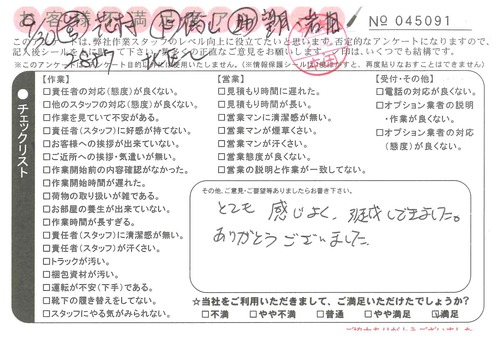 お客様不満
№ 045091
このアンケートは、弊社作業スタッフのレベル向上に役立てたいと思います。否定的なアンケートになりますので、
記入後シールを
※このアンケートは
【作業】
□責任者の対応(態度)が良くない。
□他のスタッフの対応(態度)が良くない。
□作業を見ていて不安がある。
□責任者(スタッフ)に好感が持てない。
□お客様への挨拶が出来ていない。
□ご近所への挨拶・気遣いが無い。
□作業開始前の内容確認がなかった。
□作業開始時間が遅れた。
□荷物の取り扱いが雑である。
□お部屋の養生が出来ていない。
□作業時間が長すぎる。
□責任者(スタッフ)に清潔感が無い。
□責任者(スタッフ)が汗くさい。
□トラックが汚い。
□梱包資材が汚い。
□運転が不安(下手)である。
□靴下の履き替えをしてない。
□スタッフにやる気がみられない。
【営業】
□見積もり時間に遅れた。
□見積もり時間が長い。
□営業マンに清潔感が無い。
□営業マンが煙草くさい。
□営業マンが汗くさい。
□営業態度が良くない。
□営業の説明と作業が一致してない。
【受付・その他】
□電話の対応が良くない。
□オプション業者の説明
・作業が良くない。
□オプション業者の対応
(態度)が良くない。
●チェックリスト
その他、ご意見・ご要望等ありましたらお書き下さい。
とても 感じよく、 できました。
ありがとうございました
☆当社をご利用いただきまして、ご満足いただけてでしょうか?
□不満 □やや不満 □普通 □やや満足 □満足
ご協力ありがとうございました